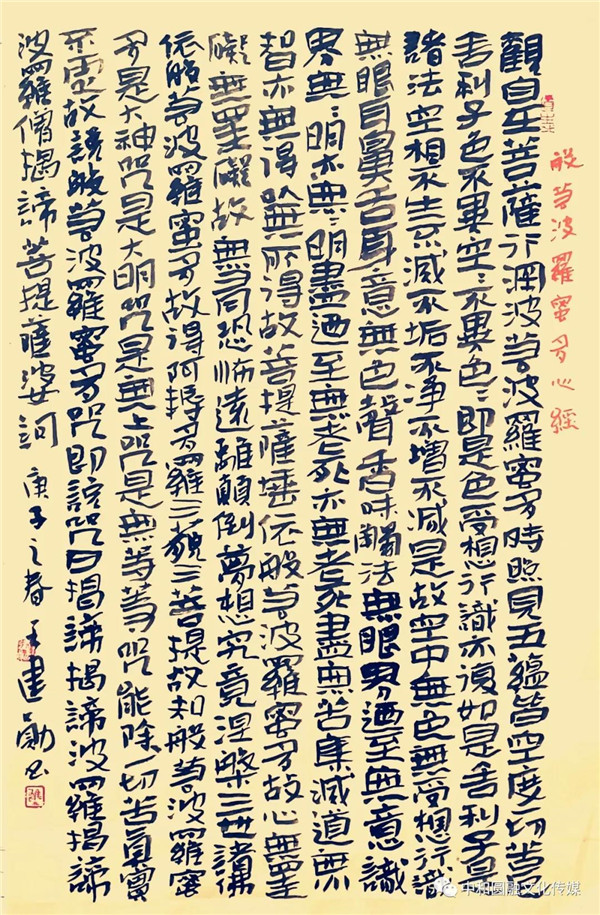 般若波羅蜜多心經
觀自在菩薩行深般若波羅蜜多時照見五蘊皆空度一切苦厄
舍利子色不異空〻不異色〻即是色受想行識亦復如是舍利子是
諸法空相不生不滅不垢不淨不增不減是故空中無色無受想行識
無眼耳鼻舌身意無色聲香味觸法無眼界迺至無意識
界無〻明亦無〻明盡迺至無老死亦無老死盡無苦集滅道無
智亦無得以無所得故菩提薩埵依般若波羅蜜多故心無罣
礙無罣礙故無有恐怖遠離顛倒夢想究竟涅槃三世諸佛
依般若波羅蜜多故得阿耨多羅三藐三菩提故知般若波羅蜜
多是大神咒是大明咒是無上咒是無等等咒能除一切苦真實
不虛故說般若波羅蜜多咒即說咒曰揭諦揭諦波羅揭諦
波羅僧揭諦菩提薩婆訶 庚子之春 王建勛书
中和圆融文化传媒